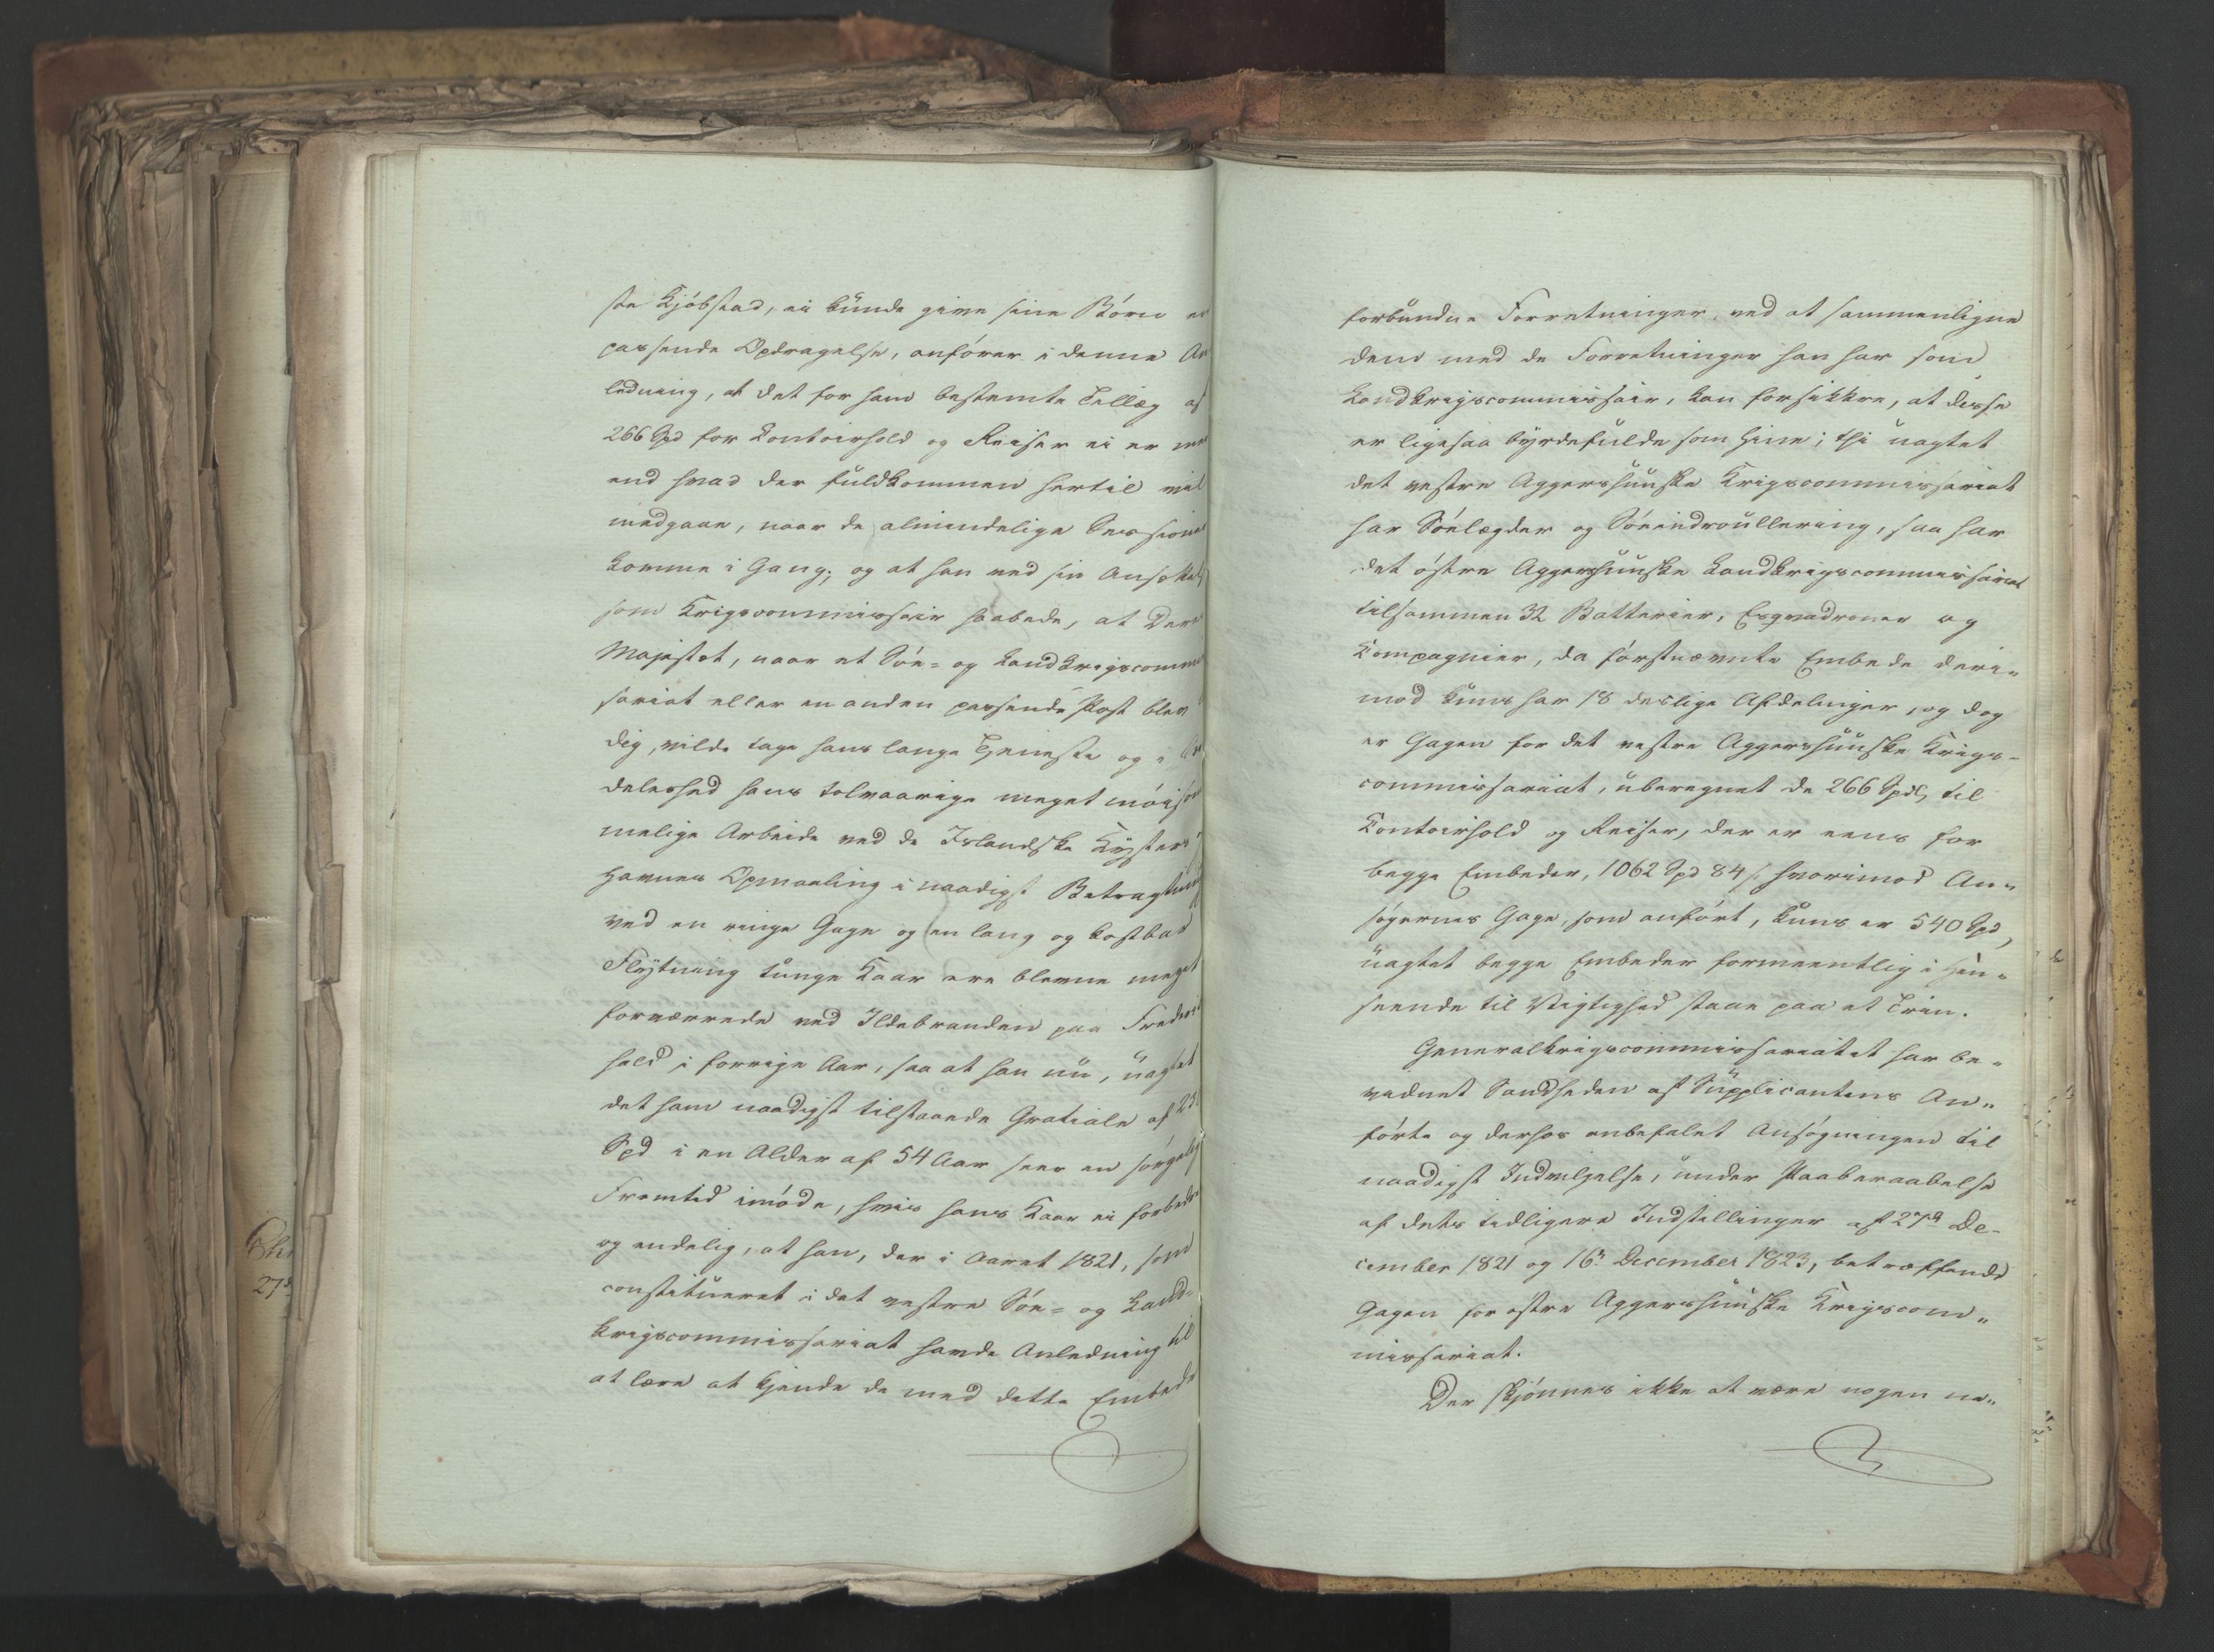 ste Kjöbstad, ei kunde give sine Börn en
passende Opdragelse, anförer i denne An
ledning, at det for ham bestemte Tillæg af
266 Spd for Contoirhold og Reiser ei er mere
end hvad der fuldkommen hertil vil
medgaae, naar de almindelige Sessioner
komme i Gang; og at han ved sin Ansættelse
som Krigscommissair haabede, at Deres
Majestæt, naar et Söe= og Landkrigscommis
sariat eller en anden passende Post blev
dig, vilde tage hans lange Tjeneste og i
deleshed hans tolvaarige meget möisom
melige Arbeide ved de Islandske Kysters
Havnes Opmaaling i naadigst Betragtning
ved en ringe Gage og en lang og kostbar
Flytning tunge Kaar ere blevne meget
forværrede ved Ildebranden paa Frederiks
hald i forrige Aar, saa at han nu, uagtet
det ham naadigst tilstaaede Gratiale af 23
Spd i en Alder af 54 Aar seer en sörgelig
Fremtid imöde, hvis hans Kaar ei forbedres
og endelig, at han, der i Aaret 1821, som
constitueret i det vestre Söe= og Land=
krigscommissariat havde Anledning til
at lære at kjende de med dette Embede
forbundne Forretninger, ved at sammenligne
dem med de Forretninger han har som
Landkrigscommissair, kan forsikkre, at disse
er ligesaa byrdefulde som hine; thi uagtet
det vestre Aggershuuske Krigscommissariat
har Söelægder og Söeindroullering, saa har
det östre Aggershuuske Landkrigscommissariat
tilsammen 32 Batterier, Esqvadroner og
Compagnier, da förstnævnte Embede deri=
mod kuns har 18 deslige Afdelinger, og dog
er Gagen for det vestre Aggershuuske Krigs=
commissariat, uberegnet de 266 Spd, til
Contoirhold og Reiser, der er eens for
begge Embeder, 1062 Spd 84 s. hvorimod An=
sögernes Gage, som anfört, kuns er 540 Spd,
uagtet begge Embeder formeentlig i Hen=
seende til Vigtighed staae paa et Trin.
Generalkrigscommissariatet har be=
vidnet Sandheden af Supplicantens An=
förte og derhos anbefalet Ansögningen til
naadigst Indvilgelse, under Paaberaabelse
af dets tidligere Indstillinger af 27de De=
cember 1821 og 16de December 1823, betræffende
Gagen for östre Aggershuuske Krigscom=
missariat.
Der skjönnes ikke at være nogen na=
27d